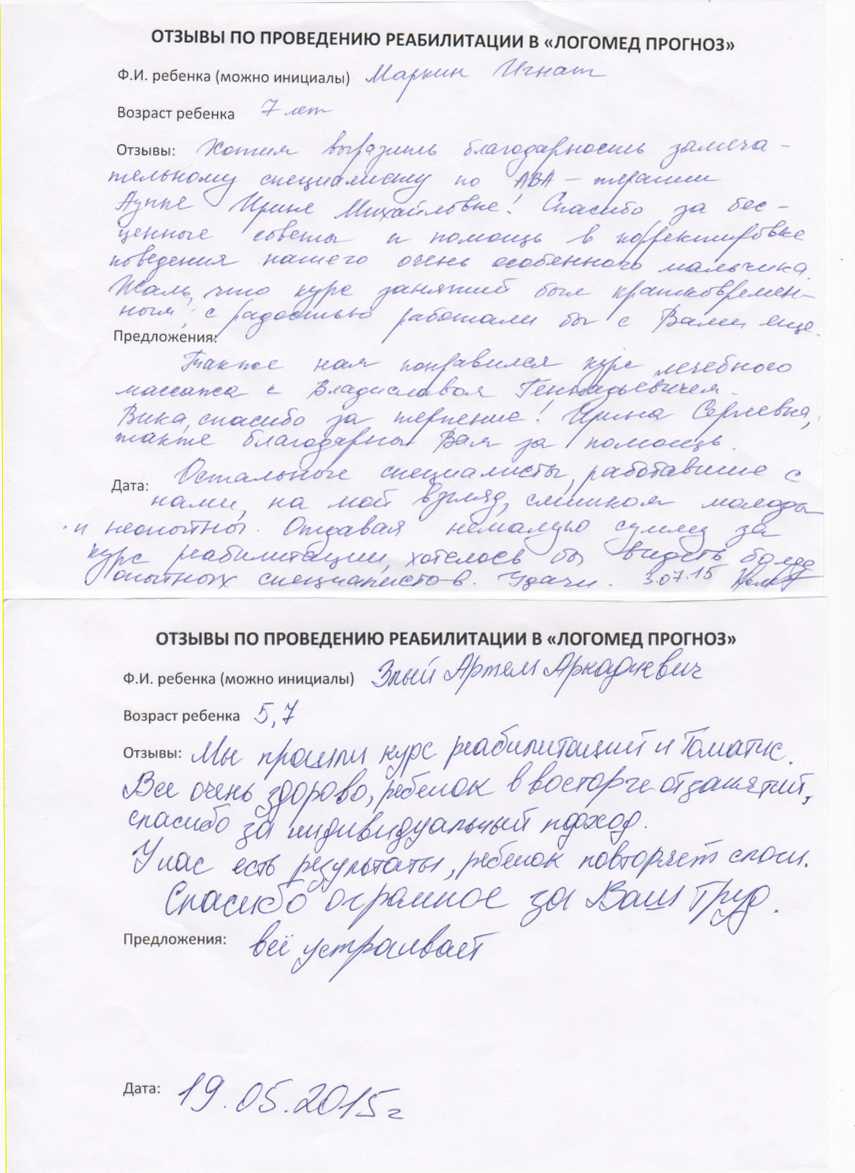 ОТЗЫВЫ ПО ПРОВЕДЕНИЮ РЕАБИЛИТАЦИИ В «ЛОГОМЕД ПРОГНОЗ»
Ф.И. ребенка (можно инициалы) Маркин Игнат
Возраст ребенка 7 лет
Отзывы: Хотим выразить благодарность замеча-
тельному специалисту по АВА – терапии
Ирине Михайловне! Спасибо за бес-
ценные советы и помощь в корректировке
поведения нашего очень особенного мальчика.
Жаль, что курс занятий был кратковремен-
ным, с радостью работали бы с Вами еще.
Предложения:
Также нам понравился курс лечебного
массажа с Владиславом Геннадьевичем.
Вика, спасибо за терпение! Ирина Сергеевна,
также благодарны Вам за помощь.
Дата: Остальные специалисты, работавшие с
нами, на мой взгляд, слишком молоды
и неопытны. Отдавая немалую сумму за
курс реабилитации, хотелось бы видеть более
опытных специалистов. Удачи. 3.07.15
ОТЗЫВЫ ПО ПРОВЕДЕНИЮ РЕАБИЛИТАЦИИ В «ЛОГОМЕД ПРОГНОЗ»
Ф.И. ребенка (можно инициалы) Злый Артем Аркадиевич
Возраст ребенка 5,7
Отзывы: Мы прошли курс реабилитаций и Томатис.
Все очень здорово, ребенок в восторге от занятий,
спасибо за индивидуальный подход.
У нас есть результаты, ребенок повторяет слоги.
Спасибо огромное за Ваш Труд.
Предложения: всё устраивает
Дата: 19.05.2015г